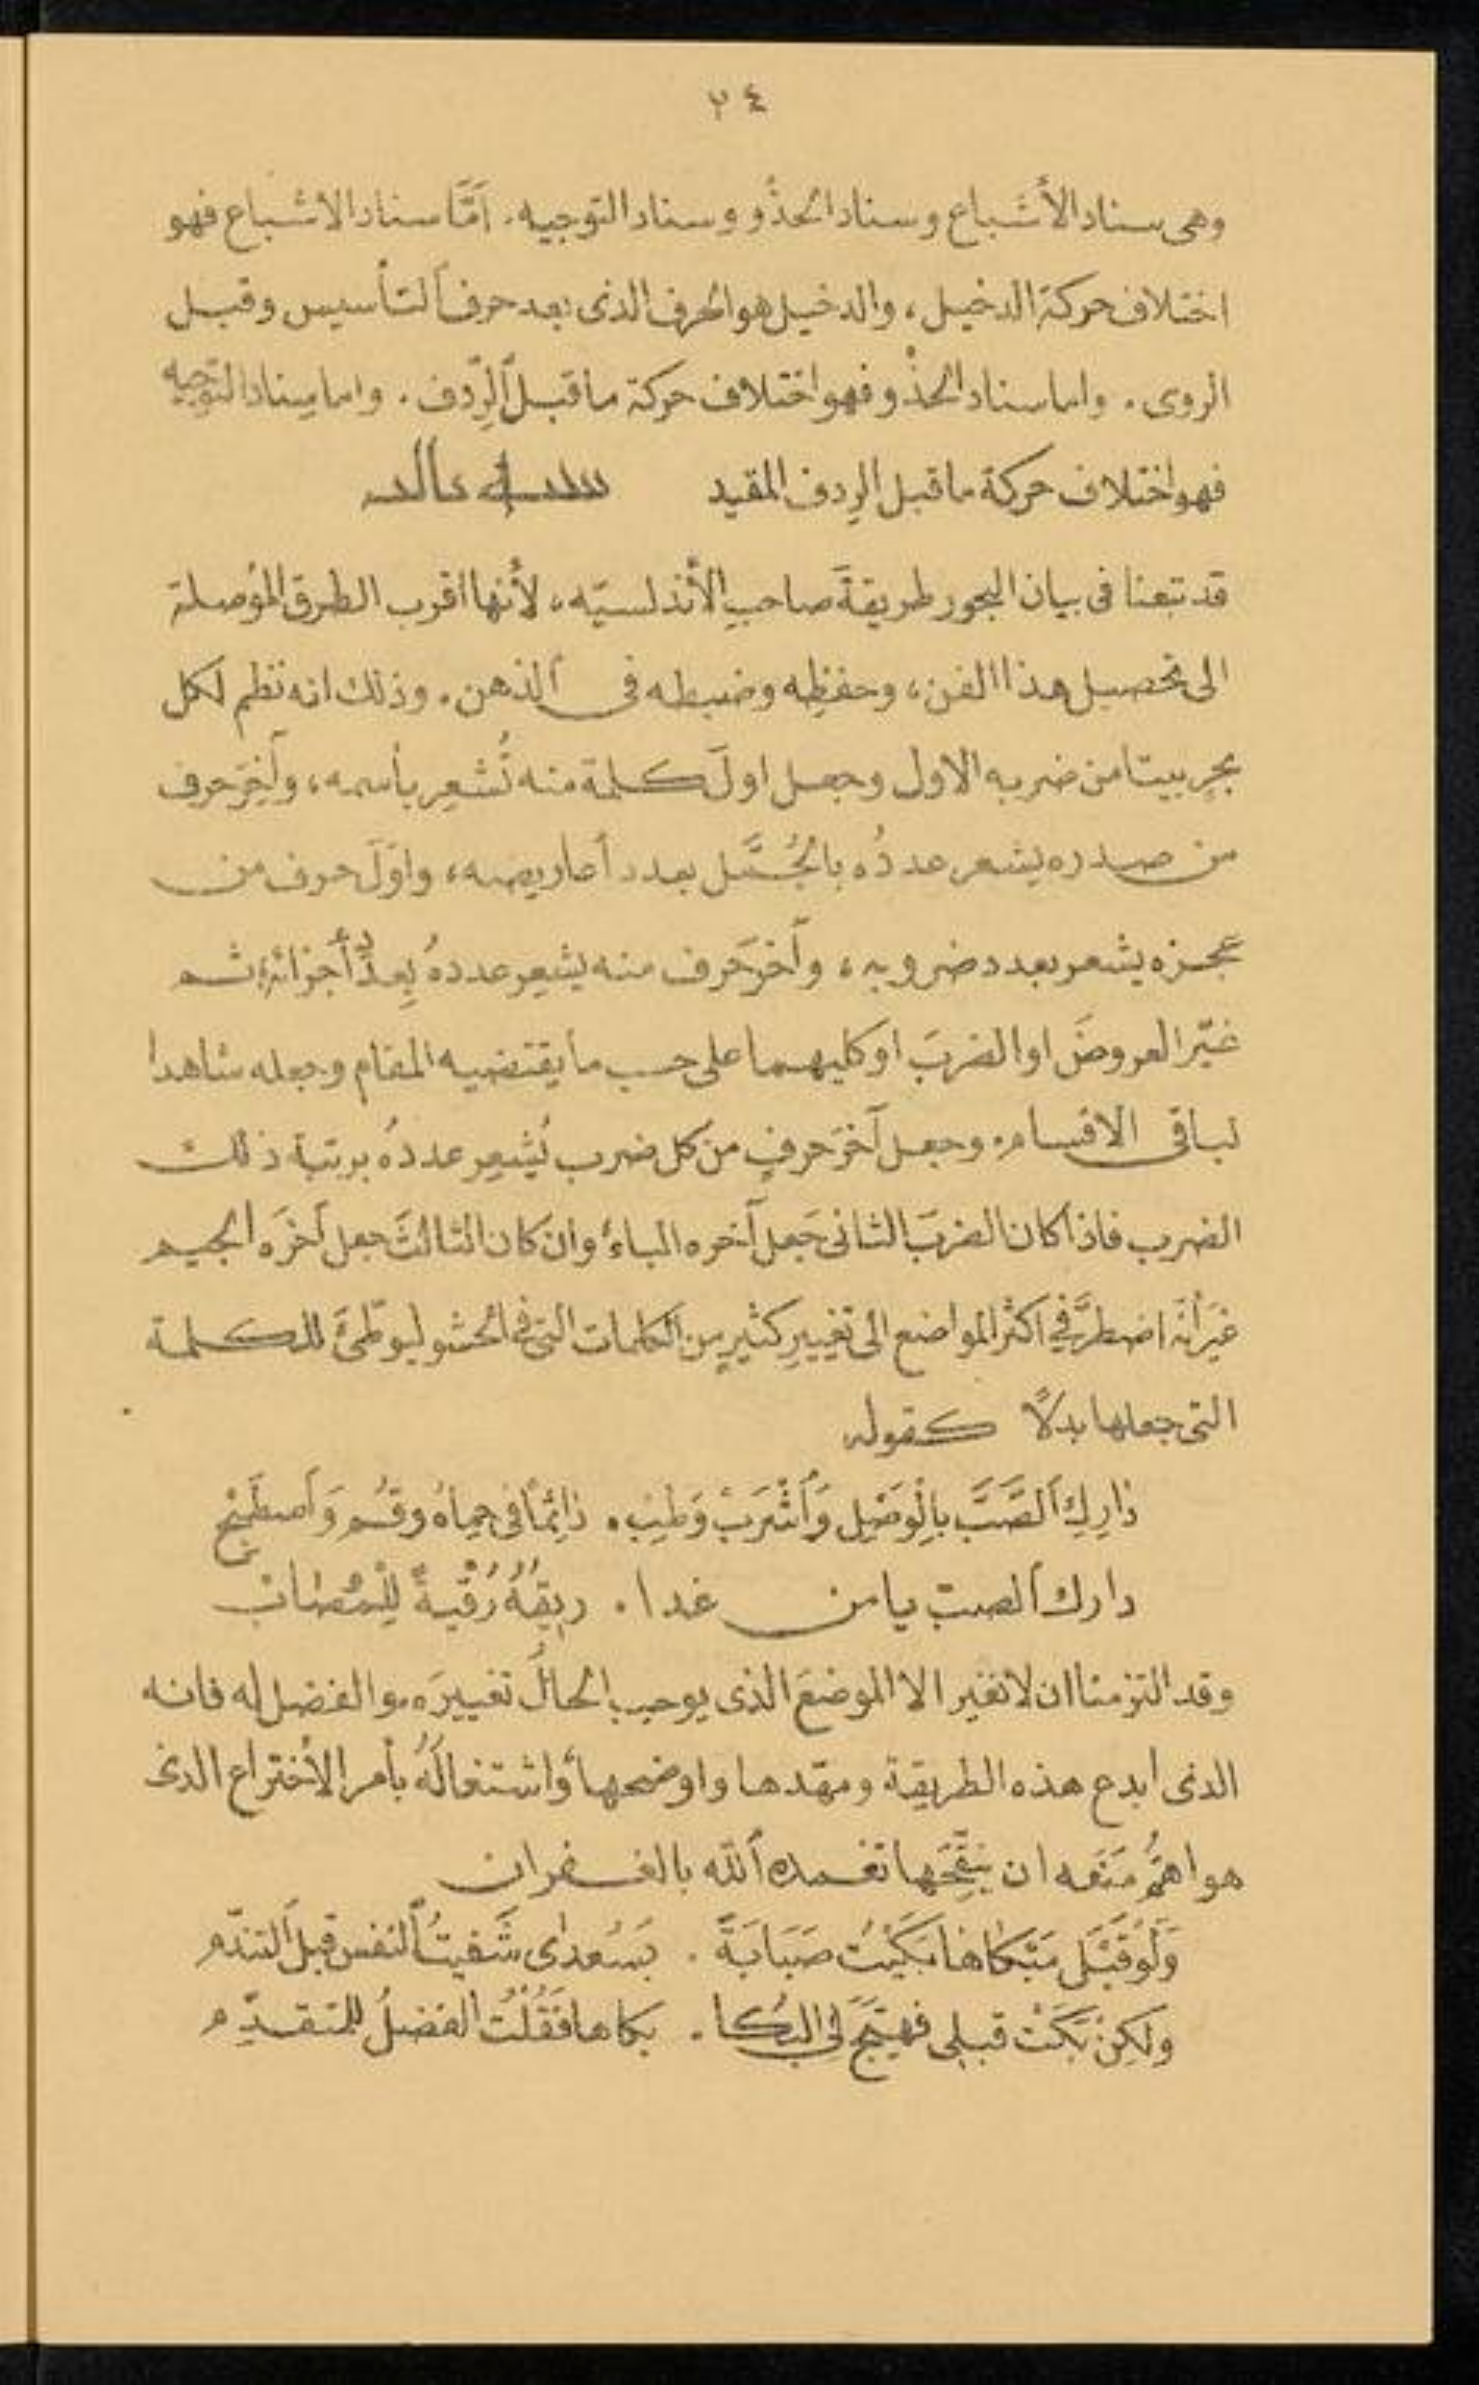 ٢٤
وهى سناد الأشباع وسناد الحذْو وسناد التوجيه. اَمَّا سناد الاشباع فهو
اختلاف حركة الدخيل، والدخيل هو الحرف الذى بعد حرف التأسيس وقبل
الروى. واما سناد الحذْو فهو اختلاف حركة ما قبل الرِّدف. واما سناد التوجيه
فهو اختلاف حركة ما قبل الرِدف المقيد
قد تبعنا فى بيان البحور طريقةَ صاحبِ الأندلسيّه، لأنها اقرب الطرق المُوصلة
الى تحصيل هذا الفن، وحفظِه وضبطه فى الذهن. وذلك انه نظم لكل
بحرٍ بيتا من ضربه الاول وجعل اولَ كلمة منه تُشعِر بأسمه، وآخِرَ حرف
من صدره يشعر عددُه بالجُمَّل بعدد أعاريضه، واوّلَ حرف من
عجزه يشعر بعدد ضروبه، وآخرَ حرف منه يشعِر عددهُ بِعدد أجزائه، ثم
غيّر العروضَ او الضربَ او كليهما على حسب ما يقتضيه المقام وجعله شاهدا
لباقى الاقسام. وجعل آخرَ حرفٍ من كل ضرب يُشعِر عددُه برتبة ذلك
الضرب فاذا كان الضربَ الثانى جَعل آخره الباءَ وان كان الثالثَ جعل آخرَه الجيم
غيرَ أنّه اضطرَّ فى اكثر المواضع الى تغييرِ كثيرٍ من الكلمات التى فى الحشو ليوطّئ للكلمة
التى جعلها بدلًا كقوله
دٰارِكِ الصَّبَّ بِالْوَصْلِ وَاُشْرَبْ وَطِبْ. دٰائِمًا فى حِماهُ وقُم وَاصطَبِحْ
دارك الصبّ يا من غدا. ريقُهُ رُقْيةً لِلْمُصٰابْ
وقد التزمنا ان لا نغير الا الموضعَ الذى يوجب الحالُ تغييرَه. والفضل له فانه
الذى ابدع هذه الطريقة ومهّدها واوضحها، واشتغالُهُ بأمر الأختراع الذى
هو اهمُّ مَنَعه ان ينقِّحَها تغمده الله بالغفران
وَلَوْ قَبْلَ مَبْكاها بَكَيْتُ صَبَابَةً. بَسُعدٰى شَفيتُ النفس قبل التندّم
ولكِنْ بَكَتْ قبلى فهيَّجَ لِى البُكا. بكاها فَقُلْتُ الفضلُ للمتقدِّم